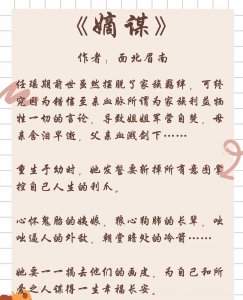 《嫡谋》
作者：西北眉南
任瑶期前世虽然摆脱了家族羁绊，可终
究因为错信至亲血脉所谓为家族利益牺
牲一切的言论，导致姐姐军营自焚，母
亲含泪早逝，父亲血溅剑下……
重生于幼时，她发誓要斩掉所有意图掌
控自己人生的利爪。
心怀鬼胎的姨娘，狼心狗肺的长辈，咄
咄逼人的外敌，朝堂暗处的冷箭……
她要一一揭去他们的画皮，为自己和所
爱之人谋得一生幸福长安。